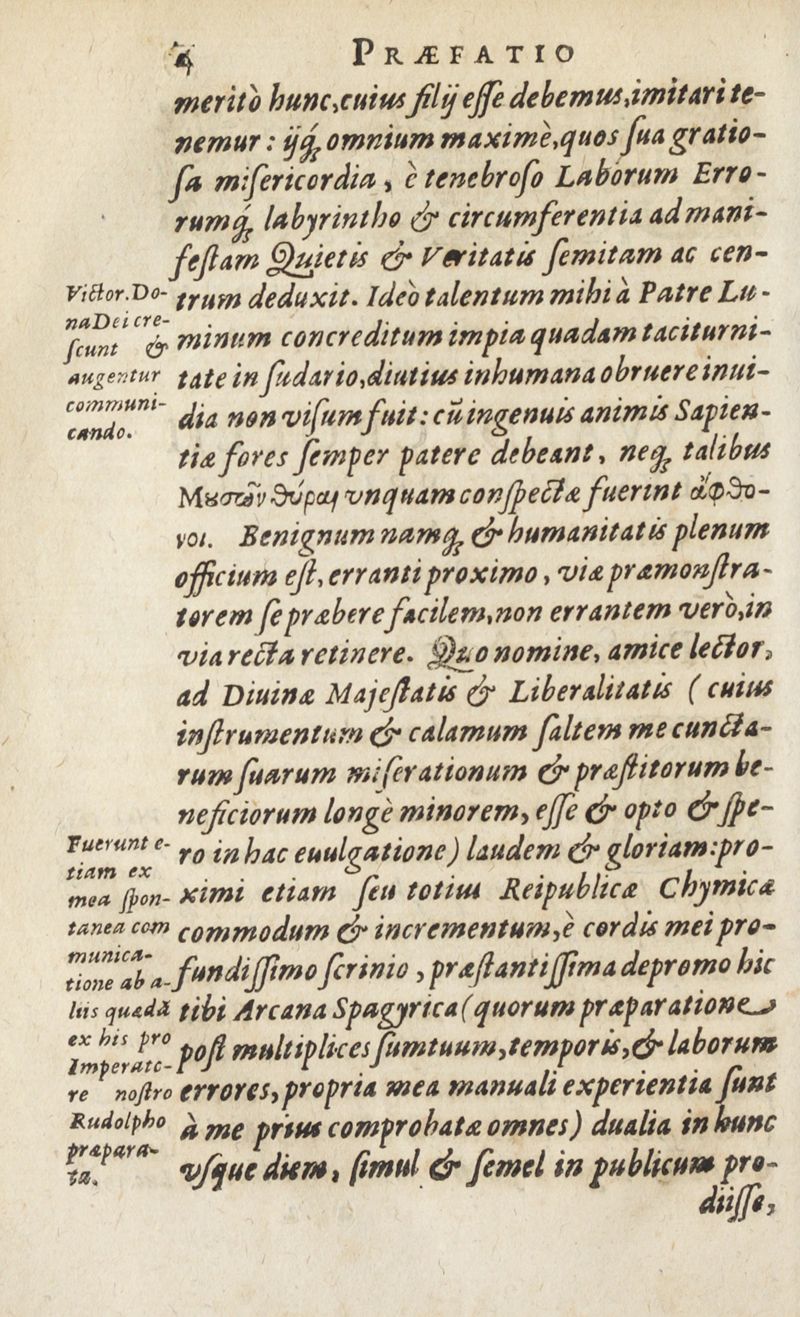 4 PRÆFATIO
meritò hunc,cuius filij esse debemus,imitari te-
nemur : ijq́; omnium maximè,quos sua gratio-
sa misericordia , è tenebroso Laborum Erro-
rumq́; labyrintho & circumferentia ad mani-
festam Quietis & Veritatis semitam ac cen-
trum deduxit. Ideò talentum mihi à Patre Lu-
minum concreditum impia quadam taciturni-
tate in sudario,diutius inhumana obruere inui-
dia non visum fuit: cũ ingenuis animis Sapien-
tiæ fores semper patere debeant, neq; talibus
Μȣσῶν θύραι vnquam conspectæ fuerint ἄφθο-
νοι. Benignum namq; & humanitatis plenum
officium est, erranti proximo, viæ præmonstra-
torem se præbere facilem,non errantem verò,in
via recta retinere. Quo nomine, amice lector,
ad Diuinæ Majestatis & Liberalitatis ( cuius
instrumentum & calamum saltem me cuncta-
rum suarum miserationum & præstitorum be-
neficiorum longè minorem, esse & opto & spe-
ro in hac euulgatione) laudem & gloriam:pro-
ximi etiam seu totius Reipublicæ Chymicæ
commodum & incrementum,è cordis mei pro-
fundissimo scrinio , præstantissima depromo hic
tibi Arcana Spagyrica(quorum præparatione
post multiplices sumtuum,temporis,& laborum
errores, propria mea manuali experientia sunt
à me prius comprobatæ omnes) dualia in hunc
vsque diem, simul & semel in publicum pro-
diisse,
Victor.Do-
na Dei cre-
scunt &
augentur
communi-
cando.
Fuerunt e-
tiam ex
mea spon-
tanea com
munica-
tione ab a-
liis quædã
ex his pro
Imperato-
re nostro
Rudolpho
præpara-
ta.